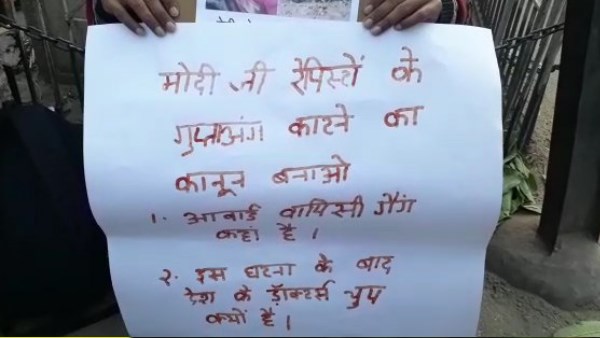 मोदी जी रेपिस्टों के
गुप्ताअंग काटने का
कानून बनाओ
1. आवार्ड वापिसी गैंग
कहां है।
२. इस घटना के बाद
देश के डॉक्टर्स चुप
क्यों है।